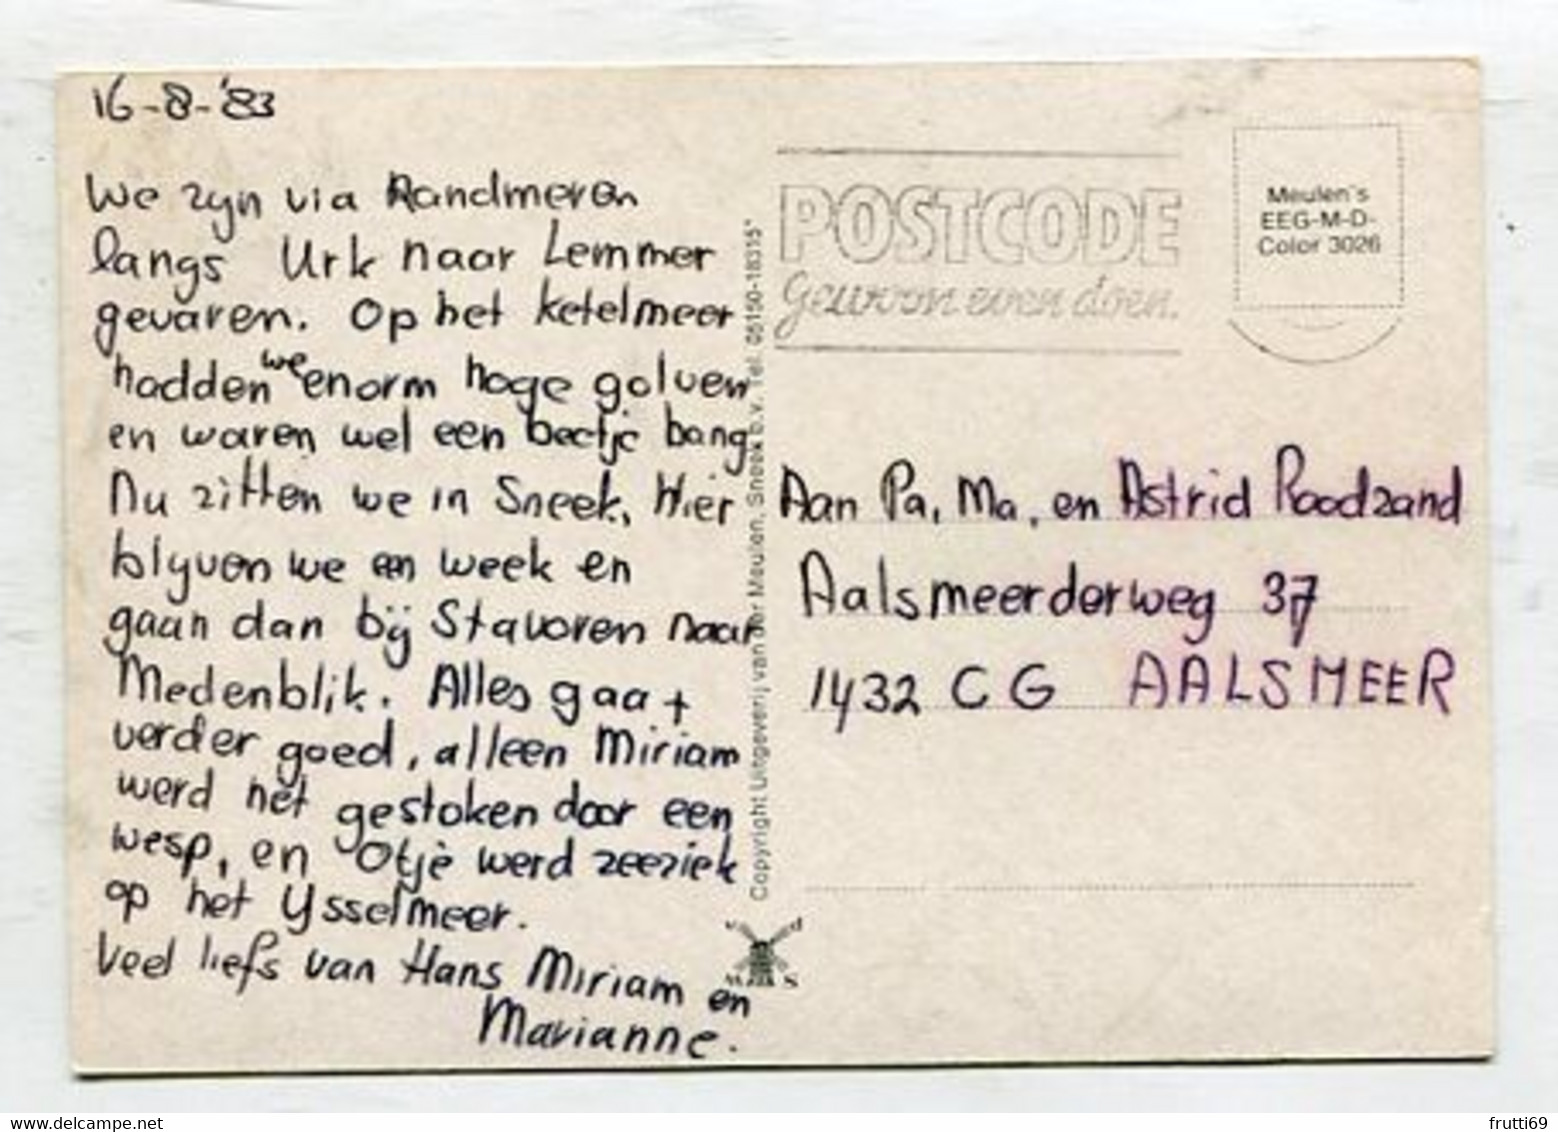 16-8-'83
We zijn via Randmeren
langs Urk naar Lemmer
gevaren. Op het ketelmeer
hadden we enorm hoge golven
en waren wel een beetje bang
Nu zitten we in Sneek. Hier
blijven we een week en
gaan dan bij Stavoren naar
Medenblik. Alles gaat
verder goed, alleen Miriam
werd net gestoken door een
wesp, en Otjè werd zeeziek
op het Ijsselmeer.
Veel liefs van Hans Miriam en
Marianne.
Copyright Uitgeverij van der Meulen, Sneek b.v. Tel. 05150-18315*
POSTCODE
Gewoon even doen.
Meulen's
EEG-M-D-
Color 3026
Aan Pa, Ma, en Astrid Roodzand
Aalsmeerderweg 37
1432 CG AALSMEER
v d
M S
frutti69